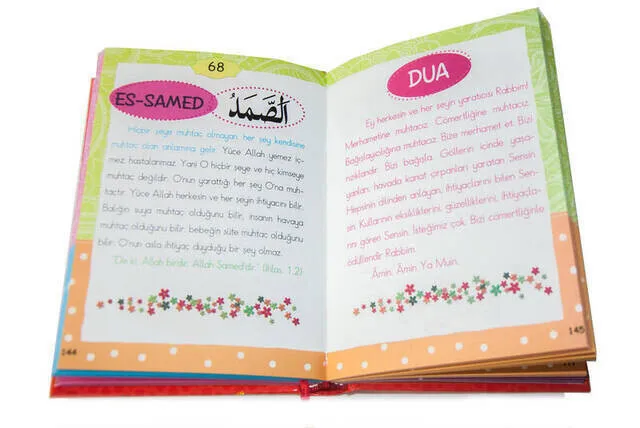 68
ES-SAMED
اَلصَّمَدُ
Hiçbir şeye muhtaç olmayan, her şey kendisine
muhtaç olan anlamına gelir. Yüce Allah yemez iç-
mez hastalanmaz. Yani O hiçbir şeye ve hiç kimseye
muhtaç değildir. O'nun yarattığı her şey O'na muh-
taçtır. Yüce Allah herkesin ve her şeyin ihtiyacını bilir.
Balığın suya muhtaç olduğunu bilir, insanın havaya
muhtaç olduğunu bilir. bebeğin süte muhtaç olduğunu
bilir. O'nun asla ihtiyaç duyduğu bir şey olmaz.
"De ki; Allah birdir. Allah Samed'dir." (İhlas, 1.2)
144
DUA
Ey herkesin ve her şeyin yaratıcısı Rabbim!
Merhametine muhtacız. Cömertliğine muhtacız.
Bağışlayıcılığına muhtacız. Bize merhamet et. Bizi
rızıklandır. Bizi bağışla. Göllerin içinde yaşa-
yanları, havada kanat çırpanları yaratan Sensin.
Hepsinin dilinden anlayan, ihtiyaçlarını bilen Sen-
sin. Kullarının eksikliklerini, güzelliklerini, ihtiyaçla-
rını gören Sensin. İsteğimiz çok. Bizi cömertliğinle
ödüllendir Rabbim.
Âmin, Âmin Ya Muin.
145